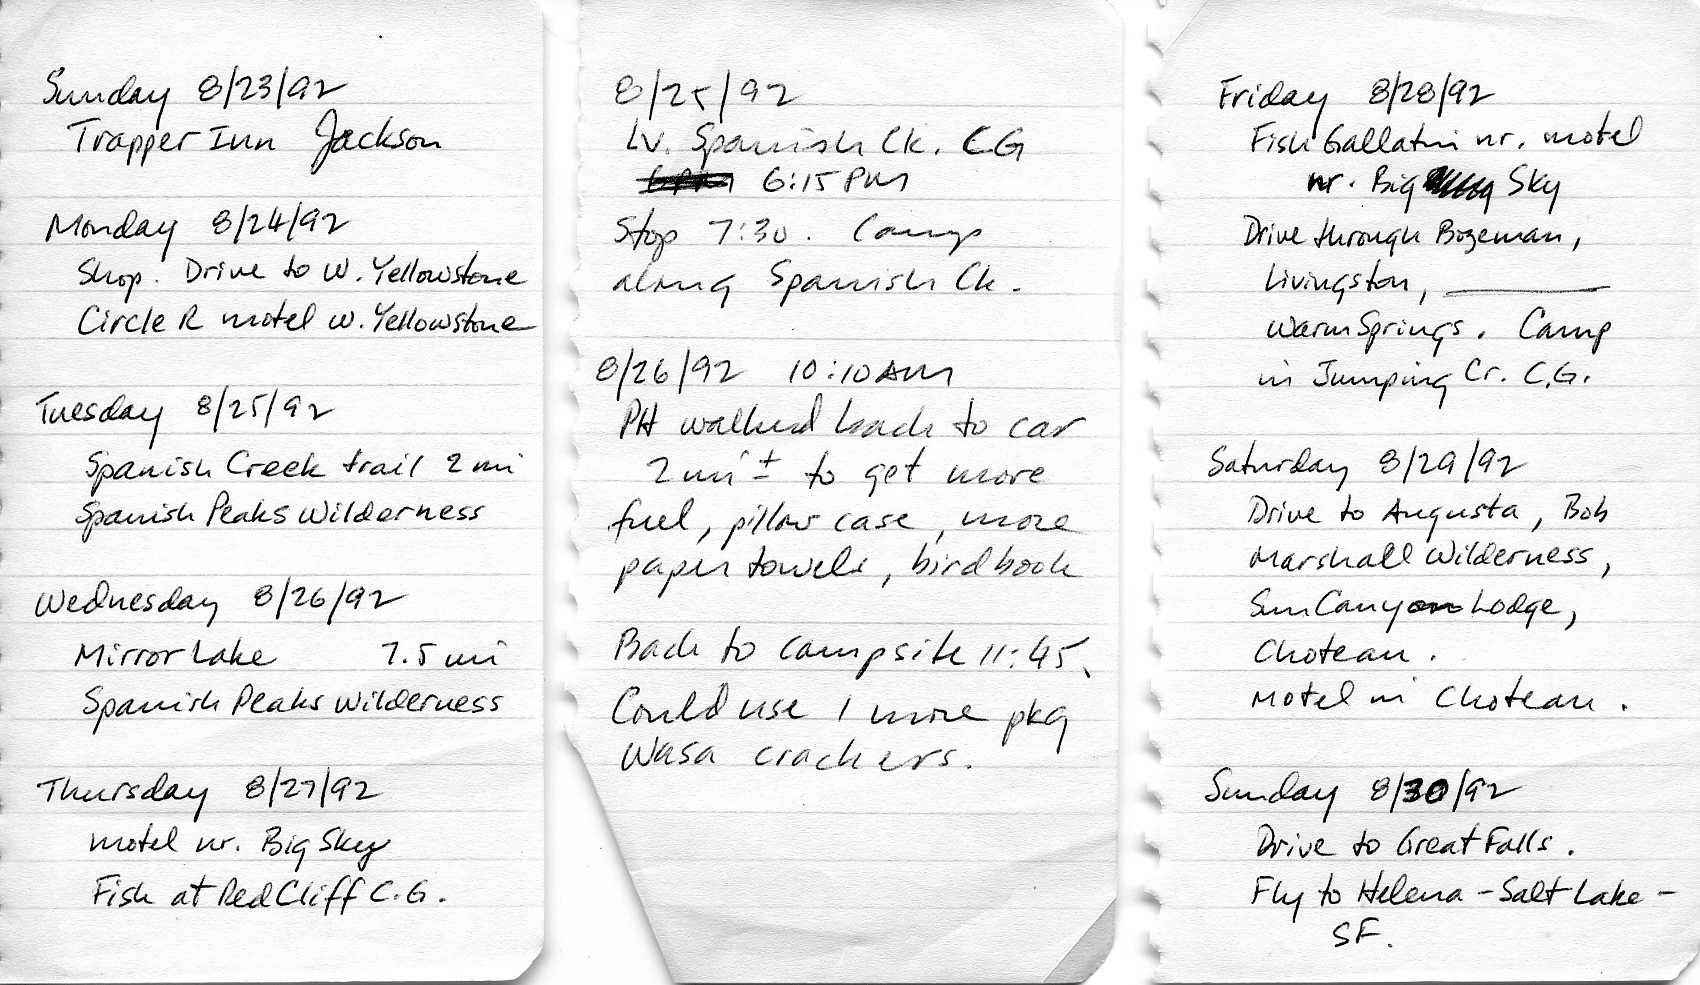 Sunday 8/23/92
Trapper Inn Jackson
Monday 8/24/92
Shop. Drive to W. Yellowstone
Circle R motel W. Yellowstone
Tuesday 8/25/92
Spanish Creek trail 2 mi
Spanish Peaks Wilderness
Wednesday 8/26/92
Mirror Lake 7.5 mi
Spanish Peaks Wilderness
Thursday 8/27/92
motel nr. Big Sky
Fish at Red Cliff C.G.
8/25/92
Lv. Spanish Ck. CG
6:15 PM
Stop 7:30. Camp
along Spanish Ck.
8/26/92 10:10 AM
PH walked back to car
2 mi ± to get more
fuel, pillow case, more
paper towels, bird book
Back to campsite 11:45.
Could use 1 more pkg
Wasa crackers.
Friday 8/28/92
Fish Gallatin nr. motel
nr. Big Sky
Drive through Bozeman,
Livingston, ________
Warm Springs. Camp
in Jumping Cr. C.G.
Saturday 8/29/92
Drive to Augusta, Bob
Marshall Wilderness,
Sun Canyon Lodge,
Choteau.
Motel in Choteau.
Sunday 8/30/92
Drive to Great Falls.
Fly to Helena - Salt Lake -
SF.